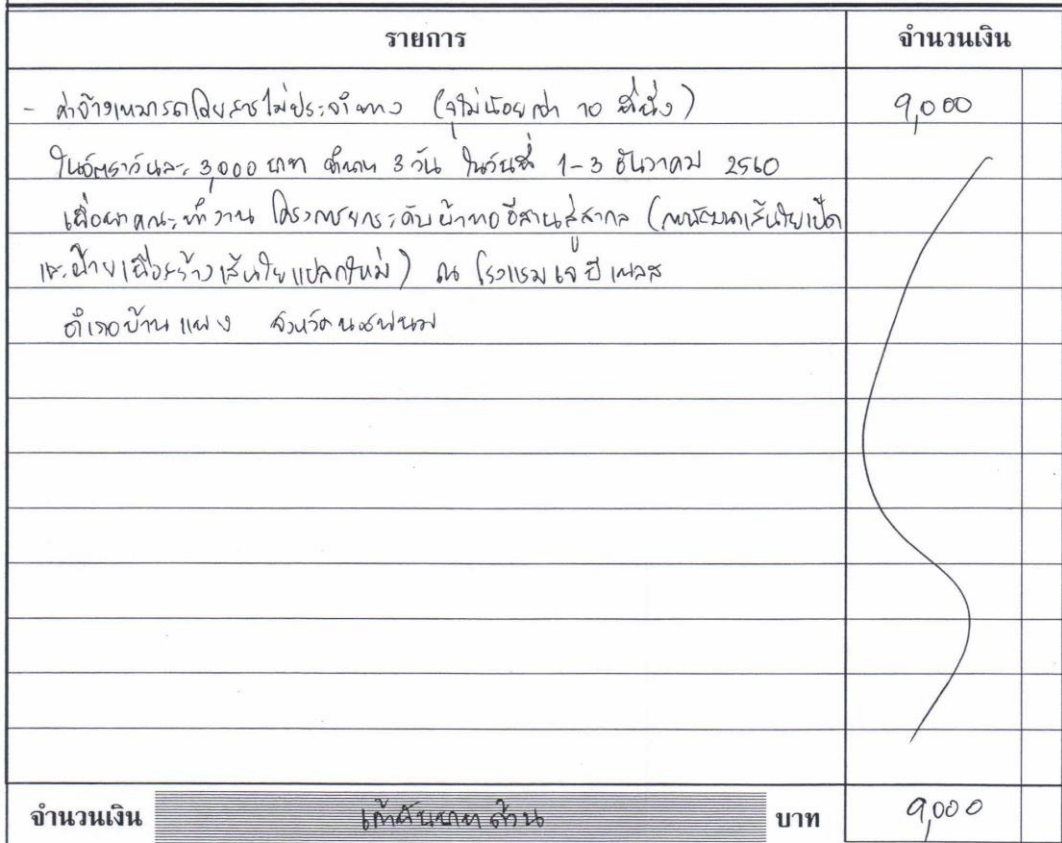 รายการ จำนวนเงิน
- ค่าจ้างเหมารถโดยสารไม่ประจำทาง (จุไม่น้อยกว่า 10 ที่นั่ง) 9,000
ในอัตราวันละ 3,000 บาท จำนวน 3 วัน ในวันที่ 1-3 ธันวาคม 2560
เพื่อพาคณะทำงาน โครงการยกระดับผ้าทออีสานสู่สากล (การพัฒนาเส้นใยเปลือก
และฝ้ายเพื่อสร้างเส้นใยแปลกใหม่) ณ โรงแรม เจ ปี เพลส
อำเภอบ้านแพง จังหวัดนครพนม
จำนวนเงิน เก้าพันบาทถ้วน บาท 9,000